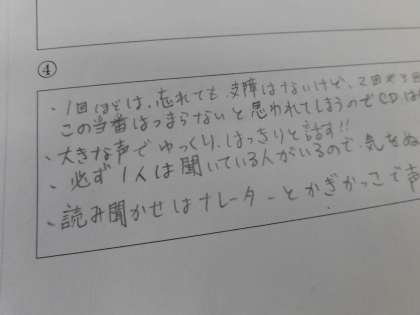 ④
・1回ほどは、忘れても支障はないけど、2回や3回
この当番はつまらないと思われてしまうのでCDは
・大きな声でゆっくり、はっきりと話す!!
・必ず1人は聞いている人がいるので、気をぬ
・読み聞かせはナレーターとかぎかっこで声